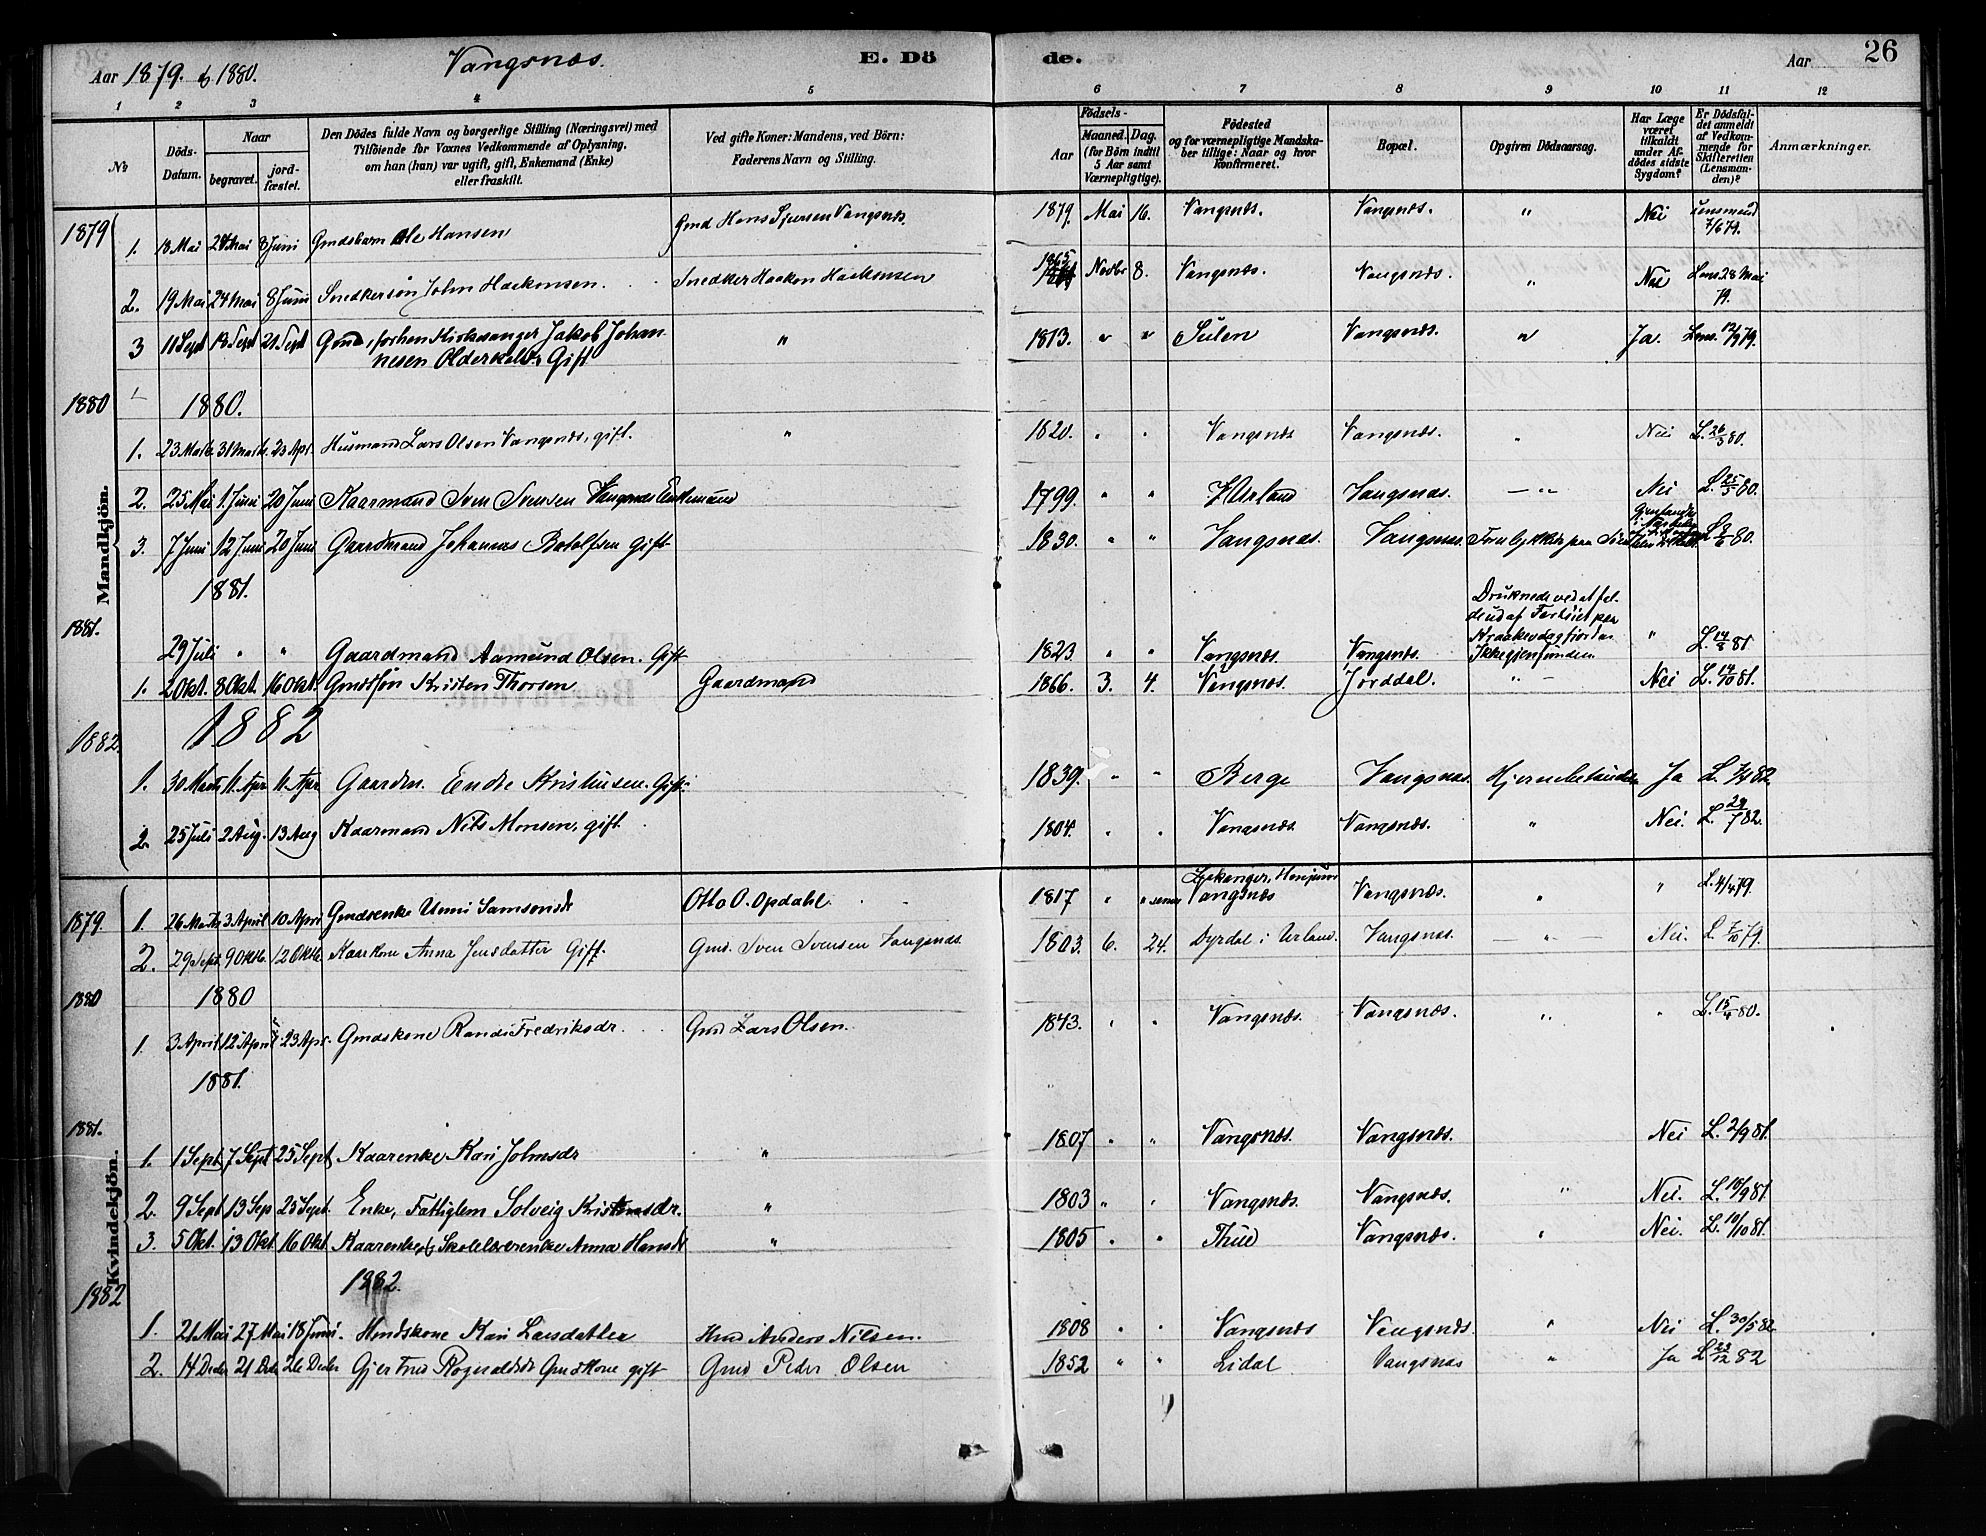 Aar 1879. & 1880. Vangsnæs. E. Döde. Aar 26
1 2 3 4 5 6 7 8 9 10 11 12
No
Döds-Datum.
Naar
begravet.
jord-fæstet.
Den Dödes fulde Navn og borgerlige Stilling (Næringsvei) med
Tilföiende for Voxnes Vedkommende af Oplysning,
om han (hun) var ugift, gift, Enkemand (Enke)
eller fraskilt.
Ved gifte Koner: Mandens, ved Börn:
Faderens Navn og Stilling.
Födsels-
Aar
Maaned. Dag.
(for Börn indtil
5 Aar samt
Værnepligtige).
Födested
og for værnepligtige Mandska-
ber tillige: Naar og hvor
konfirmeret.
Bopæl.
Opgiven Dödsaarsag.
Har Læge
været
tilkaldt
under Af-
dödes sidste
Sygdom?
Er Dödsfal-
det anmeldt
af Vedkom-
mende for
Skifteretten
(Lensman-
den)?
Anmærkninger.
Mandkjön.
1879
1. 18 Mai 24 Mai 8 Juni Gmdsbarn Ole Hansen Gmd Hans Vangsnæs 1879. Mai 16. Vangsnæs. Vangsnæs. " Nei Lensmand 7/6 79.
2. 19 Mai 24 Mai 8 Juni Snedkersön John Haakonsen. Snedker Haakon Haakonsen 1865 Novbr 8. Vangsnæs. Vangsnæs. " Nei Lens 28 Mai 79.
3 11 Sept 18 Sept 21 Sept Gmd, forhen Kirkesanger Jakob Johan-
nesen Gift " 1813. " " Sulen Vangsnæs. " Ja. Lens. 12/9 79.
1880 1880.
1. 23 Marts 31 Marts 23 Apr. Husmand Lars Olsen Vangsnæs, gift. " 1820. " " Vangsnæs Vangsnæs. " Nei L. 26/3 80.
2. 25 Mai 1 Juni 20 Juni Kaarmand Sven Svensen Vangsnæs Enkemand 1799. " " Urland Vangsnæs. — " Nei L. 25/5 80.
3. 7 Juni 12 Juni 20 Juni Gaardmand Johannes Botolfsen Gift 1830. " " Vangsnæs. Vangsnæs. L 8/6 80.
1881.
1881. 29 Juli " " Gaardmand Aamund Olsen. Gift 1823. " " Vangsnæs. Vangsnæs. Druknede ved at fal-
de ud af Fartöiet paa
Ikke gjenfunden " L. 14/8 81
1. 2 Okt. 8 Okt. 16 Okt. Gmdssön Kristen Thorsen Gaardmand 1866. 3. 4. Vangsnæs. Jorddal. " Nei L. 14/10 81.
1882
1882. 1. 30 Marts 11 Apr 11 Apr Gaardm. Endre Gift. 1839. " " Berge Vangsnæs. Hjernebetændelse Ja L. 7/4 82
2. 25 Juli 2 Aug. 13 Aug Kaarmand Nils Monsen, gift. 1804. " " Vangsnæs. Vangsnæs. " Nei. L. 29/7 82.
Kvindekjön.
1879. 1. 26 Marts 3 April 10 April Gmdsenke Unni Samsonsdr Otto O. Opdahl. 1817 " " Vangsnæs Vangsnæs. " " L. 4/4 79.
2. 29 Sept. 9 Oktb. 12 Oktb. Kaarkone Anna Jensdatter Gift. Gmd. Sven Svensen Vangsnæs 1803. 6. 24. Dyrdal i Urland. Vangsnæs. — " — Nei. L. 7/10 79.
1880 1880
1. 3 April 12 April 23 Apr. Gmdskone Randi Fredriksdr. Gmd Lars Olsen. 1843. " " Vangsnæs. Vangsnæs. " " L. 15/4 80.
1881.
1881. 1. 1 Sept. 7 Sept 25 Sept Kaarenke Kari Johnsdr " 1807 " " Vangsnæs. Vangsnæs. Nei L. 2/9 81.
2. 9 Sept 13 Sep 25 Sept. Enke, Fattiglem Solveig " 1803 " " Vangsnæs. Vangsnæs. " Nei. L. 10/9 81.
3. 5 Okt. 13 Okt 16 Okt. Kaarenke, Anna Hansdr " 1805 " " Vangsnæs. " Nei. L. 10/10 81.
1882.
1882 1. 21 Mai 27 Mai 18 Juni. Hmdskone Kari Larsdatter Hmd Anders Nilsen. 1808 " " Vangsnæs Vangsnæs. " Nei L. 30/5 82
2. 14 Decbr 21 Decbr 26 Decbr Gjertrud Gmdskone gift Gmd Peder Olsen 1852 " " Lidal Vangsnæs " Ja L 23/12 82